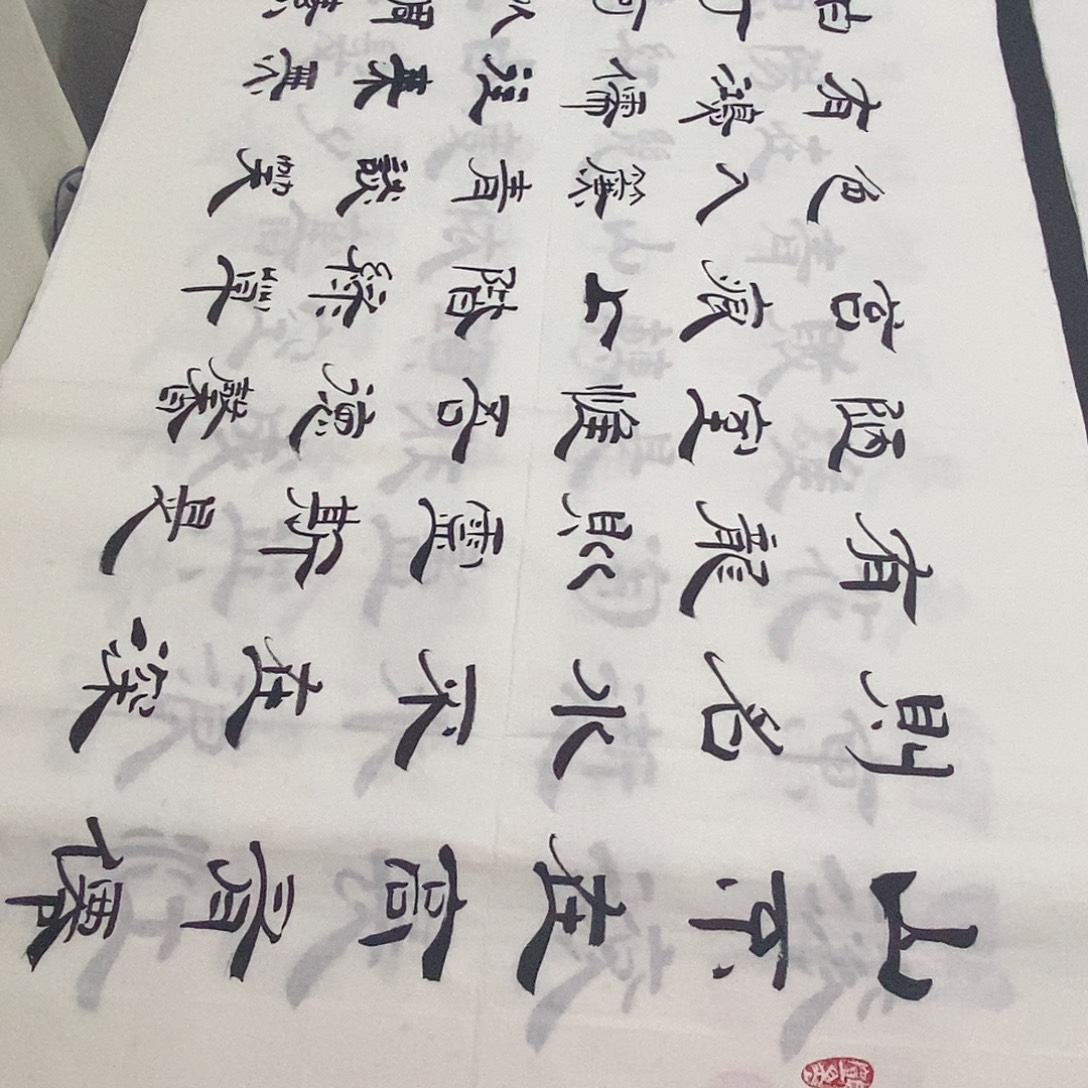 山不在高有僊
則名水不在深
有龍則靈斯是
陋室惟吾德馨
苔痕上階綠草
色入簾青談笑
有鴻儒往來無
白丁可以調素